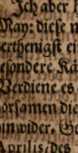 Ich aber h
May: diese n
erthenigst ein
esondere Kä
Verdiene es
orsamen die
in wider, G
Aprilis, des